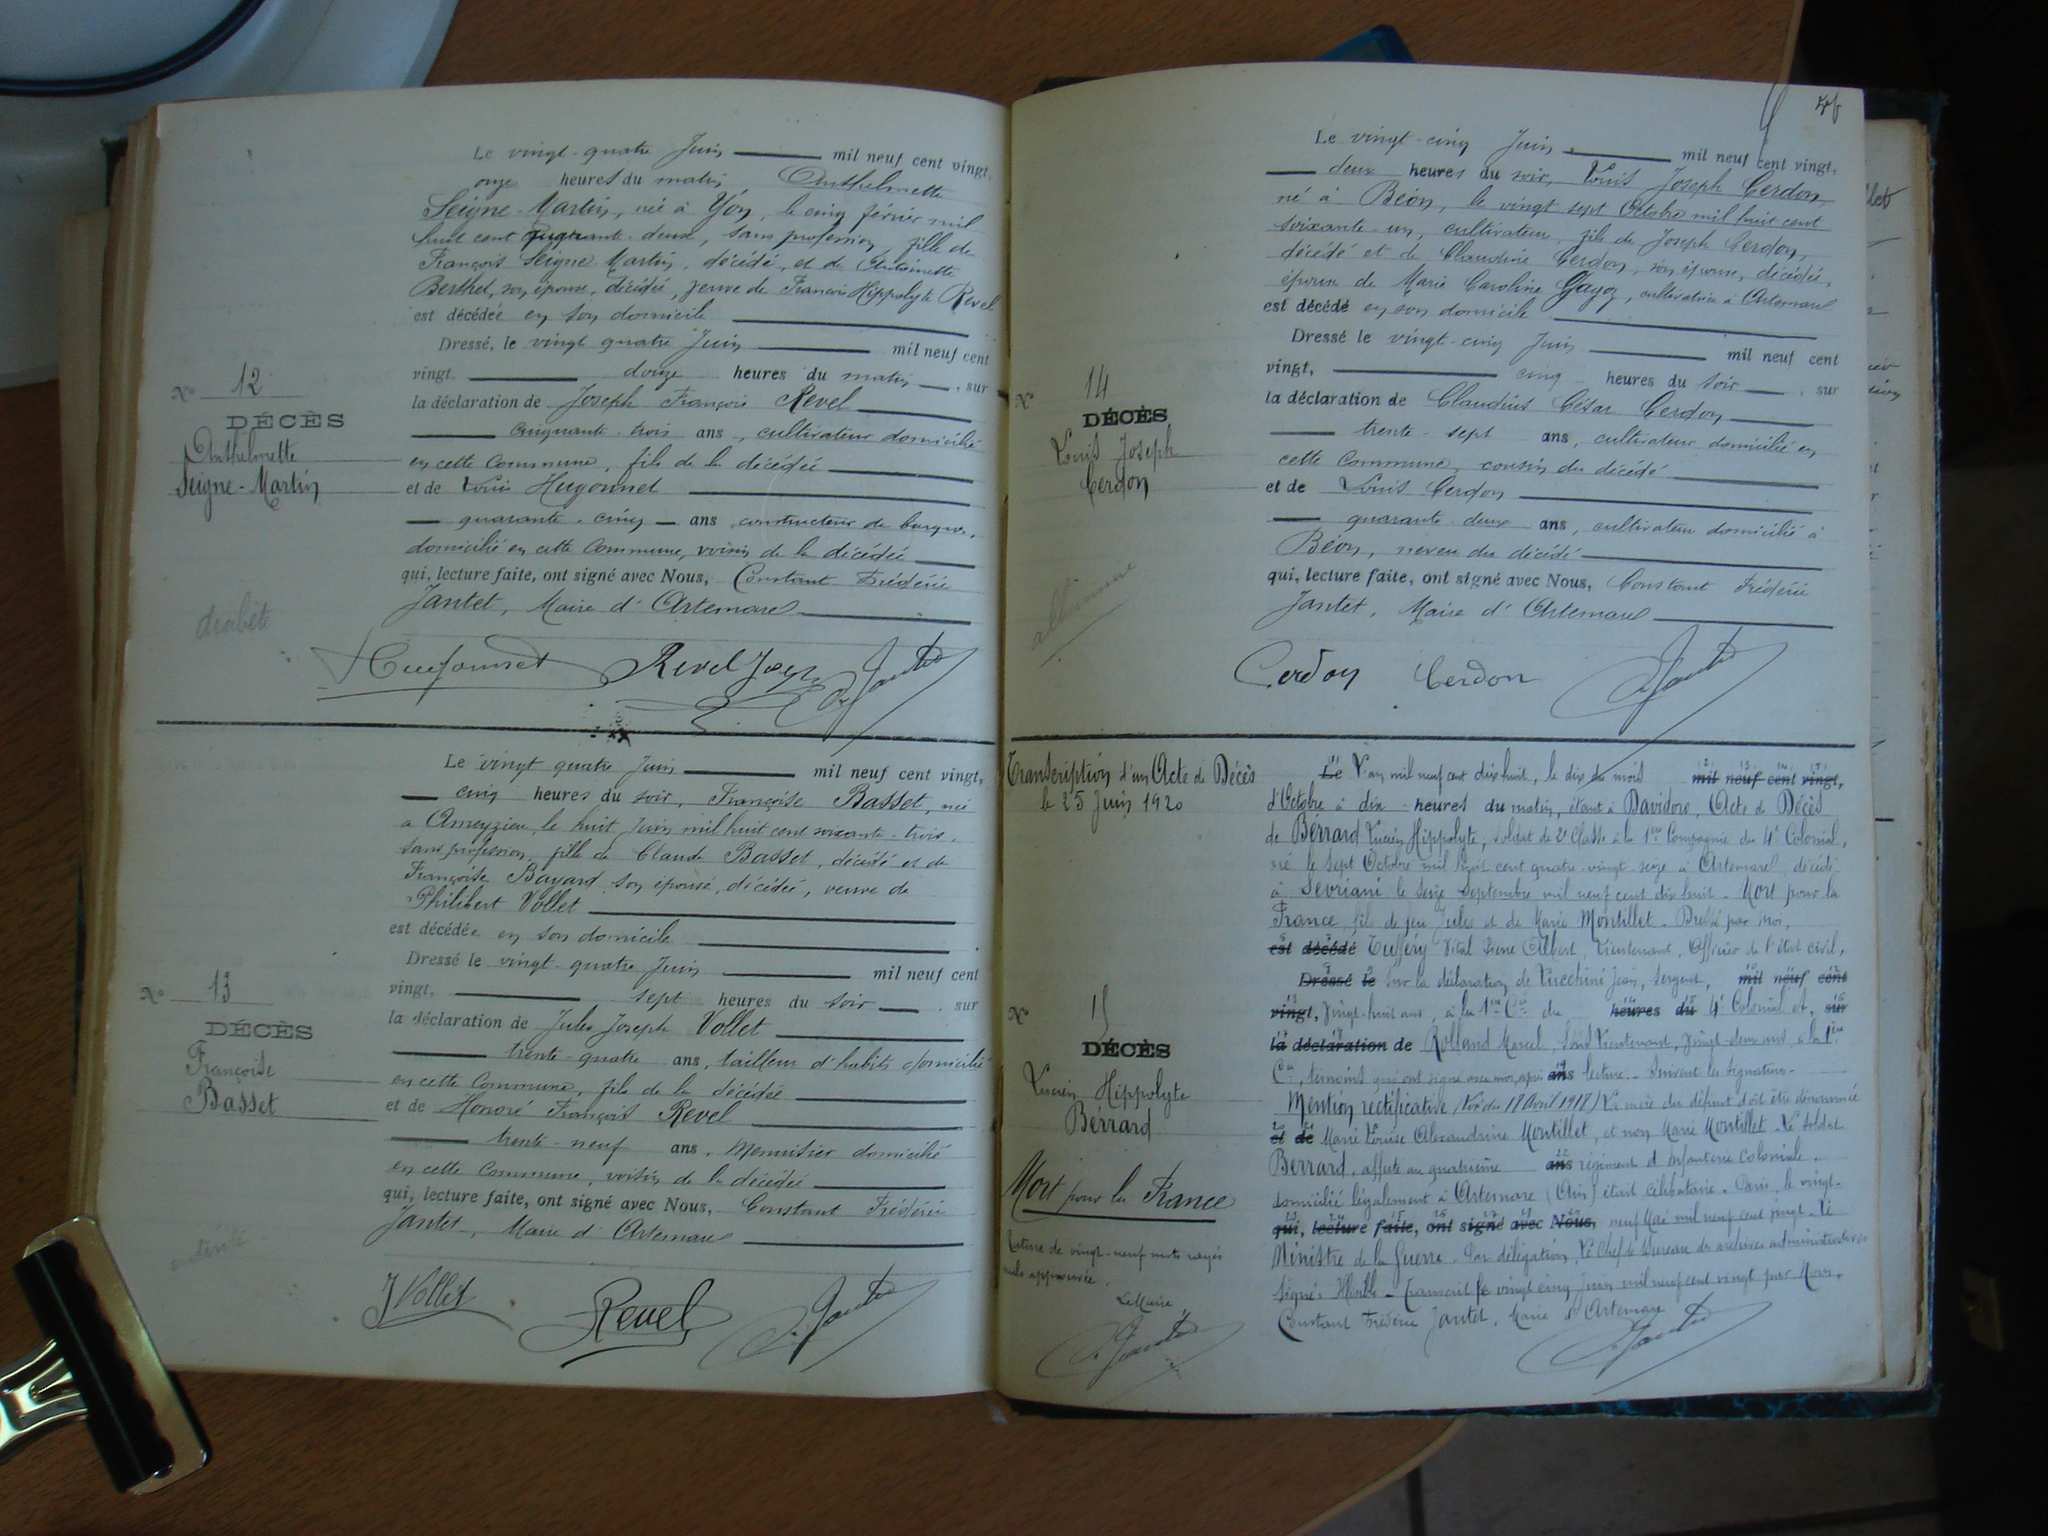 Le vingt-quatre Juin mil neuf cent vingt,
onze heures du matin Anthelmette
Seigne-Martin, née à Yon, le cinq février mil
huit cent quarante-deux, sans profession, fille de
François Seigne-Martin, décédé, et de Antoinette
Berthet, son épouse, décédée, veuve de François Hippolyte Revel
est décédée en son domicile
Dressé, le vingt quatre Juin mil neuf cent
vingt, douze heures du matin, sur
la déclaration de Joseph François Revel
cinquante-trois ans, cultivateur domicilié
en cette commune, fils de la décédée
et de Louis Hugonnet
quarante-cinq ans, constructeur de barques,
domicilié en cette Commune, voisin de la décédée
qui, lecture faite, ont signé avec Nous, Constant Frédéric
Jantet, Maire d'Artemare
No 12
DÉCÈS
Anthelmette
Seigne-Martin
diabète
Hugonnet Revel Josep Jantet
Le vingt quatre Juin mil neuf cent vingt,
cinq heures du soir, Françoise Basset, née
à Ameyzieu, le huit Juin mil huit cent soixante-trois,
sans profession, fille de Claude Basset, décédé et de
Françoise Bayard, son épouse, décédée, veuve de
Philibert Vollet
est décédée en son domicile
Dressé le vingt-quatre Juin mil neuf cent
vingt, sept heures du soir, sur
la déclaration de Jules Joseph Vollet
trente-quatre ans, tailleur d'habits domicilié
en cette Commune, fils de la décédée
et de Honoré François Revel
trente-neuf ans, Menuisier domicilié
en cette Commune, voisin de la décédée
qui, lecture faite, ont signé avec Nous, Constant Frédéric
Jantet, Maire d'Artemare
No 13
DÉCÈS
Françoise
Basset
J Vollet Revel Jantet
Le vingt-cinq Juin mil neuf cent vingt,
deux heures du soir, Louis Joseph Cerdon,
né à Béon, le vingt sept Octobre mil huit cent
soixante-un, cultivateur, fils de Joseph Cerdon,
décédé et de Claudine Cerdon, son épouse, décédée,
époux de Marie Caroline Gayoz, cultivatrice à Artemare
est décédé en son domicile
Dressé le vingt-cinq Juin mil neuf cent
vingt, cinq heures du soir, sur
la déclaration de Claudius César Cerdon
trente-sept ans, cultivateur domicilié en
cette Commune, cousin du décédé
et de Louis Cerdon
quarante-deux ans, cultivateur domicilié à
Béon, neveu du décédé
qui, lecture faite, ont signé avec Nous, Constant Frédéric
Jantet, Maire d'Artemare
No 14
DÉCÈS
Louis Joseph
Cerdon
Cerdon Cerdon Jantet
Transcription d'un Acte de Décès
le 25 Juin 1920
Le L'an mil neuf cent dix huit, le dix du mois mil neuf cent vingt,
d'Octobre à dix heures du matin, étant à Davidovo, Acte de Décès
de Bérrard Lucien Hippolyte, soldat de 2e Classe à la 1ère Compagnie du 4e Colonial,
né le sept Octobre mil huit cent quatre-vingt-seize à Artemare, décédé
à Sevriani le seize Septembre mil neuf cent dix huit. Mort pour la
France, fils de feu Jules et de Marie Montillet. Dressé par moi,
est décédé Tuffery Vital Albert, Lieutenant, Officier de l'état civil,
Dressé le sur la déclaration de Jean, Sergent, mil neuf cent
vingt, vingt-huit ans, à la 1ère Cie du heures du 4e Colonial et, sur
la déclaration de Rolland Marcel, Sous Lieutenant, vingt-deux ans, à la 1ère
Cie, témoins qui ont signé avec moi, après ans lecture. Suivent les signatures.
Mention rectificative (Loi du 18 Avril 1918) La mère du défunt doit être dénommée
et de Marie Louise Alexandrine Montillet, et non Marie Montillet. Le Soldat
Berrard, affecté au quatrième ans régiment d'Infanterie Coloniale,
domicilié légalement à Artemare (Ain) était célibataire. Paris, le vingt-
qui, lecture faite, ont signé avec Nous, neuf Mai mil neuf cent vingt. Le
Ministre de la Guerre. Par délégation, Le Chef de Bureau des archives administratives
Signé: Transcrit le vingt cinq Juin mil neuf cent vingt par Nous,
Constant Frédéric Jantet, Maire d'Artemare
Jantet
No 15
DÉCÈS
Lucien Hippolyte
Bérrard
Mort pour la France
Rature de vingt-neuf mots rayés
nuls approuvée.
Le Maire
Jantet